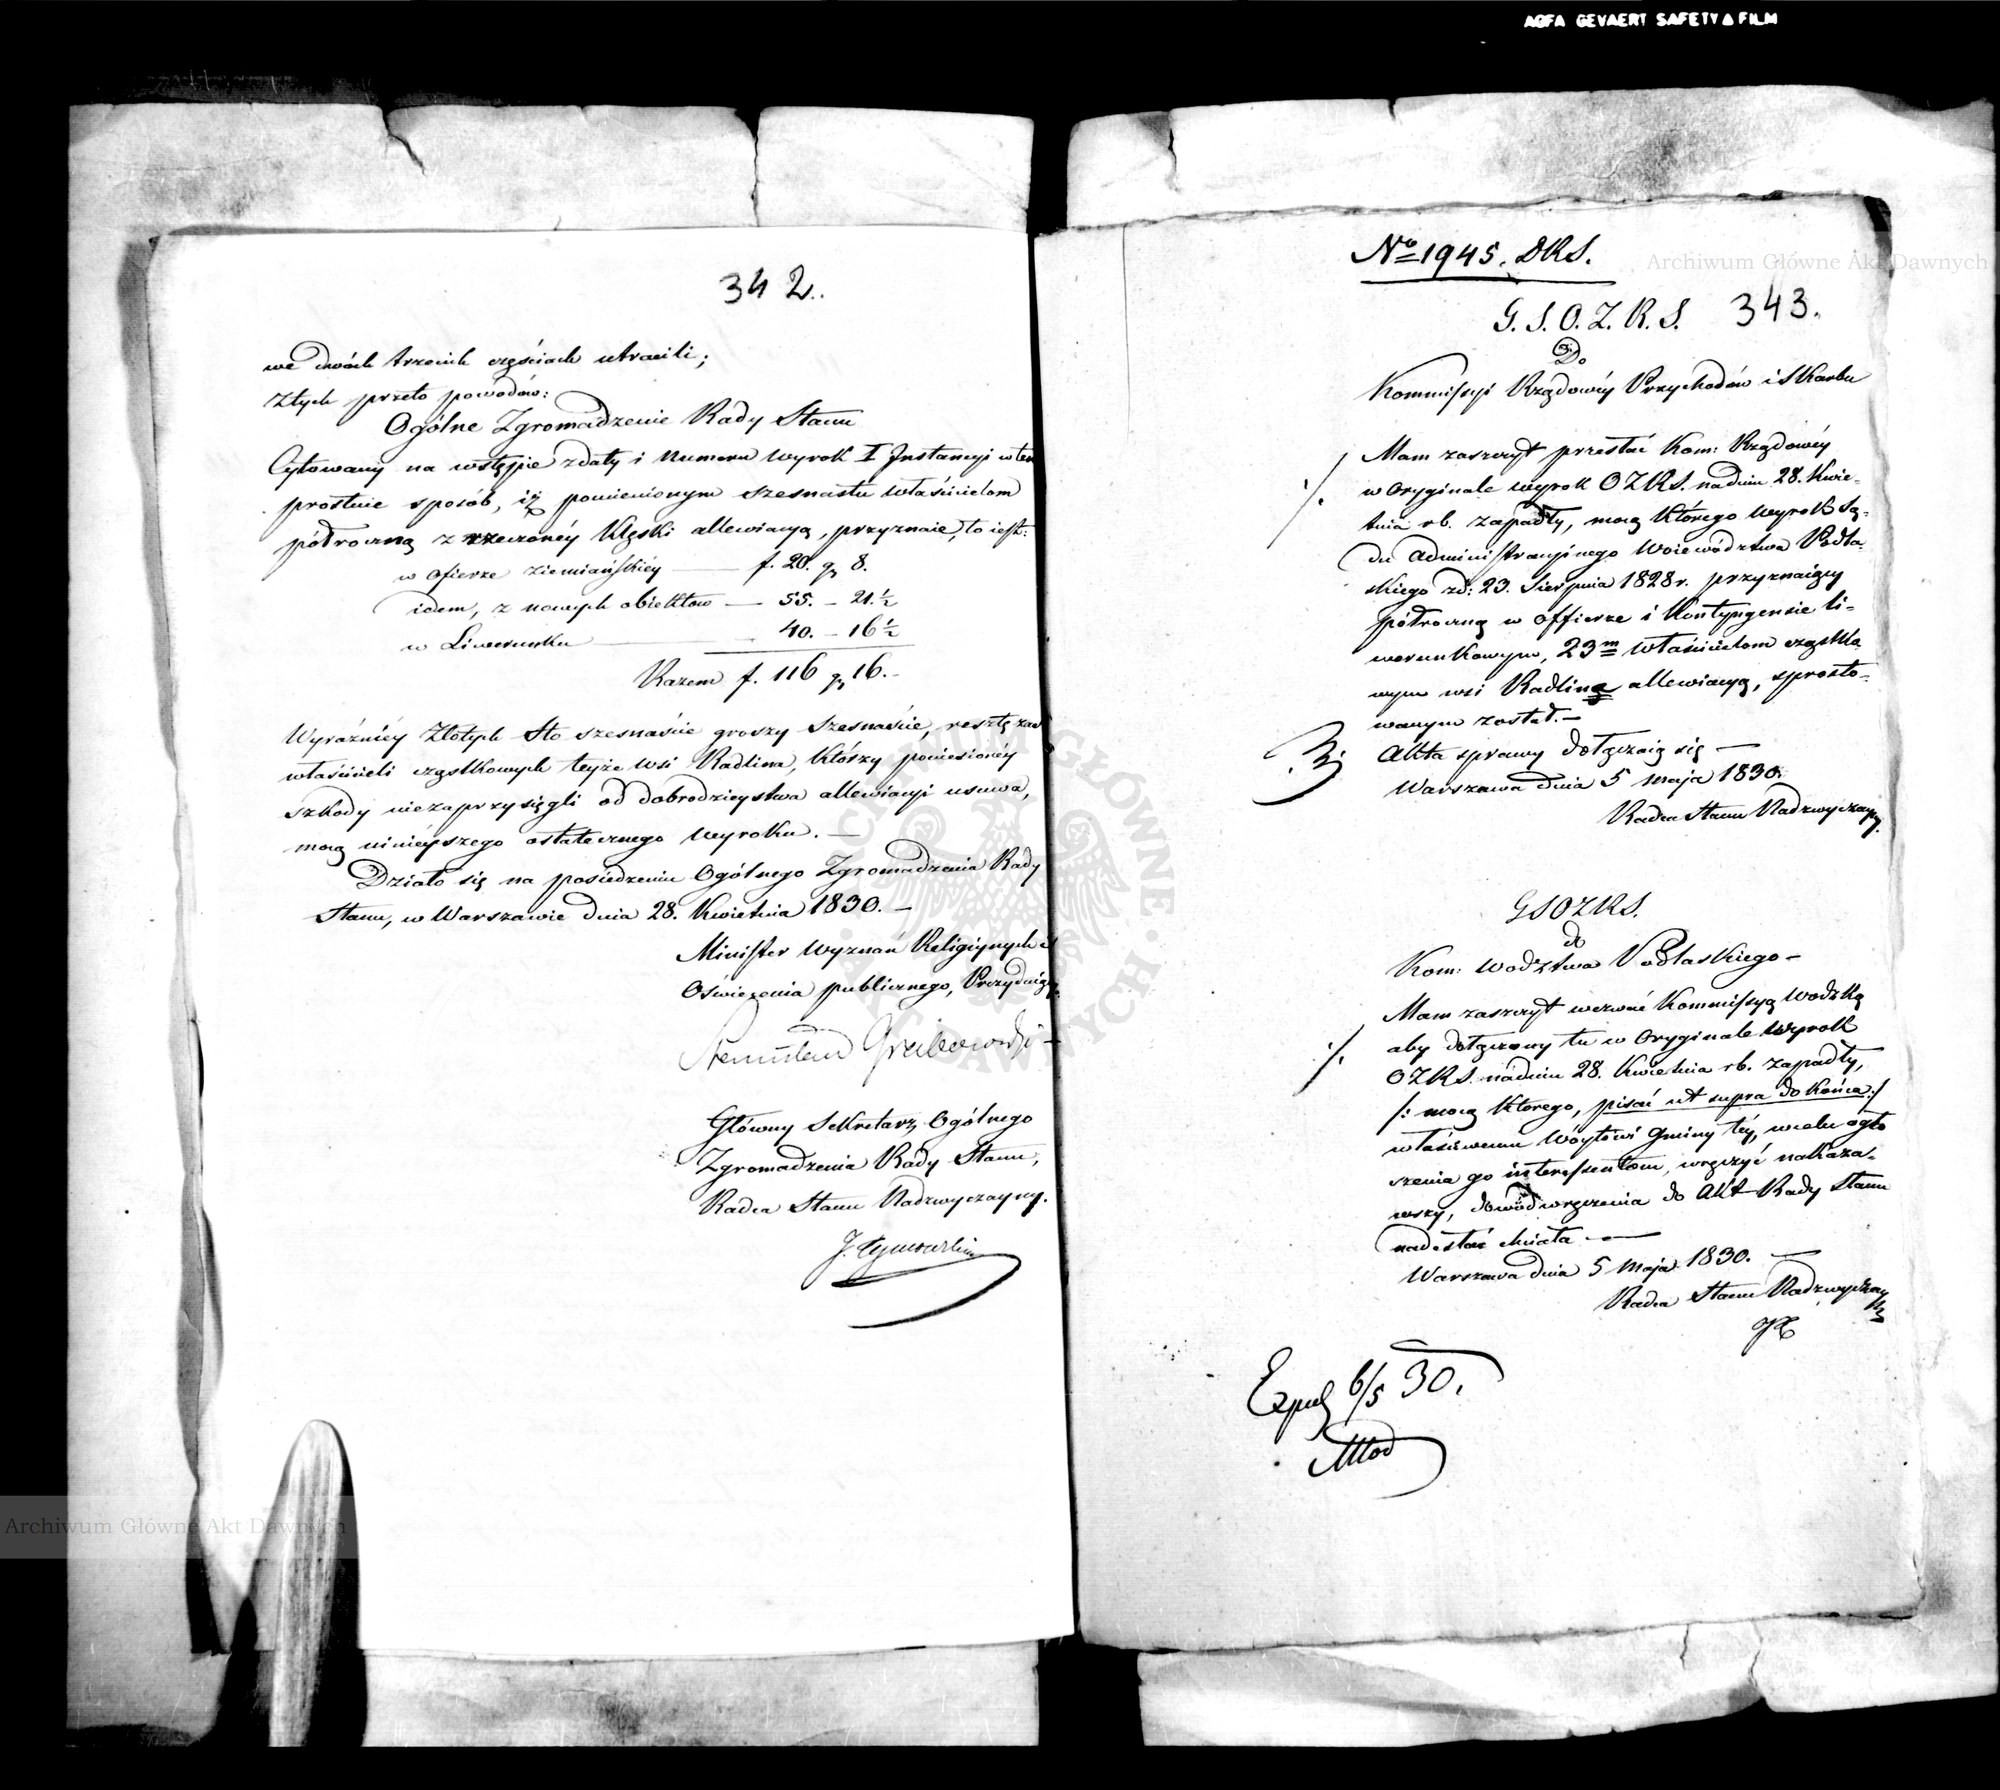 AGFA GEVAERT SAFETY FILM
342.
we dwóch trzecich częściach utracili;
Z tych przeto powodów:
Ogólne Zgromadzenie Rady Stanu
Cytowany na wstępie z daty i Numeru wyrok I Instancyi w ten
prostuie sposób, iż pomienionym szesnastu właścicielom
półroczną z rzeczonéy klęski allewiacyą, przyznaie, to iest:
w ofierze ziemiańskiéy — f. 20. gr 8.
idem, z nowych obiektów — 55. – 21.½
w Liwerunku — 40. – 16½
Razem f. 116 gr 16.–
Wyraźniéy Złotych Sto szesnaście groszy szesnaście, resztę zaś
właścicieli cząstkowych teyże wsi Radlina, którzy poniesionéy
szkody niezaprzysięgli od dobrodzieystwa allewiacyi usuwa,
mocą ninieyszego ostatecznego wyroku. —
Działo się na posiedzeniu Ogólnego Zgromadzenia Rady
Stanu, w Warszawie dnia 28. Kwietnia 1830. —
Minister Wyznań Religiynych i
Oświecenia publicznego, Prezyduiący
Stanisław Grabowski
Główny Sekretarz Ogólnego
Zgromadzenia Rady Stanu,
Radca Stanu Nadzwyczayny.
No 1945. DRS.
G. S. O. Z. R. S. 343.
Do
Kommissyi Rządowéy Przychodów i Skarbu
Mam zaszczyt przesłać Kom: Rządowéy
w oryginale wyrok OZRS. na dniu 28. Kwie-
tnia rb. zapadły, mocą którego wyrok Są-
du Administracyinego Woiewództwa Podla-
skiego zd: 23. Sierpnia 1828 r. przyznaiący
półroczną w offierze i Kontyngensie li-
werunkowym, 23m właścicielom cząstko-
wym wsi Radlina allewiacyą, sprosto-
wanym został. —
Akta sprawy dołączaią się —
Warszawa dnia 5 Maja 1830.
Radca Stanu Nadzwyczayny.
GSOZRS.
do
Kom: Wodztwa Podlaskiego –
Mam zaszczyt wezwać Kommissyą Wodzką
aby dołączony tu w Oryginale Wyrok
OZRS. na dniu 28. Kwietnia rb. zapadły,
/: mocą którego, pisać ut supra do końca :/
właściwemu Wóytowi Gminy téy, w celu ogło
szenia go interessentom, wręczyć nakaza-
wszy, dowód wręczenia do Akt Rady Stanu
nadesłać chciała —
Warszawa dnia 5 Maja 1830. —
Radca Stanu Nadzwyczayny
Exped 6/5 30.
Archiwum Główne Akt Dawnych
Archiwum Główne Akt Dawnych
ARCHIWUM GŁÓWNE AKT DAWNYCH